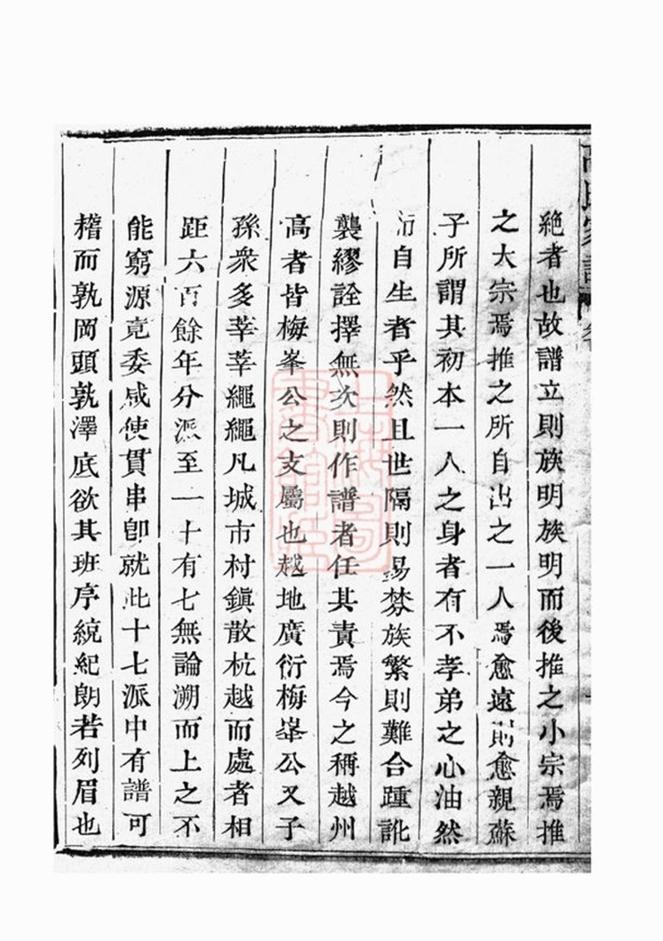 高氏家譜
絶者也故譜立則族明族明而後推之小宗焉推
之大宗焉推之所自出之一人焉愈遠則愈親蘇
子所謂其初本一人之身者有不孝弟之心油然
而自生者乎然且世隔則易棼族繁則難合踵訛
襲繆詮擇無次則作譜者任其責焉今之稱越州
高者皆梅峯公之支屬也越地廣衍梅峯公又子
孫衆多莘莘繩繩凡城市村鎮散杭越而處者相
距六百餘年分派至一十有七無論溯而上之不
能窮源竟委咸使貫串卽就此十七派中有譜可
稽而孰岡頭孰澤底欲其班序統紀朗若列眉也